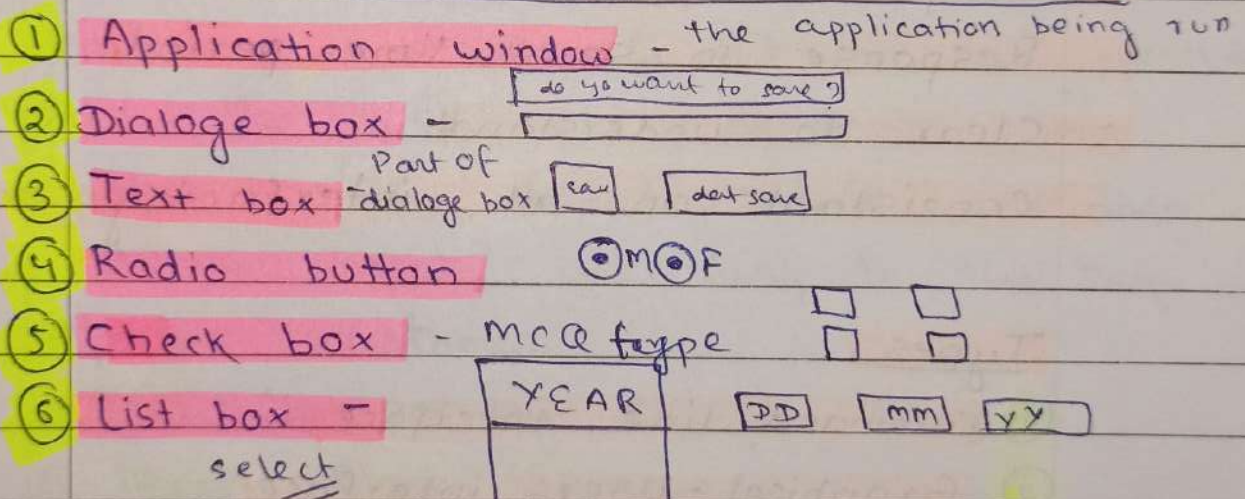 ① Application window - the application being run
do yo want to save ?
② Dialoge box -
Part of
③ Text box - dialoge box sav dont save
④ Radio button M F
⑤ Check box - MCQ type
⑥ List box - YEAR DD MM YY
select